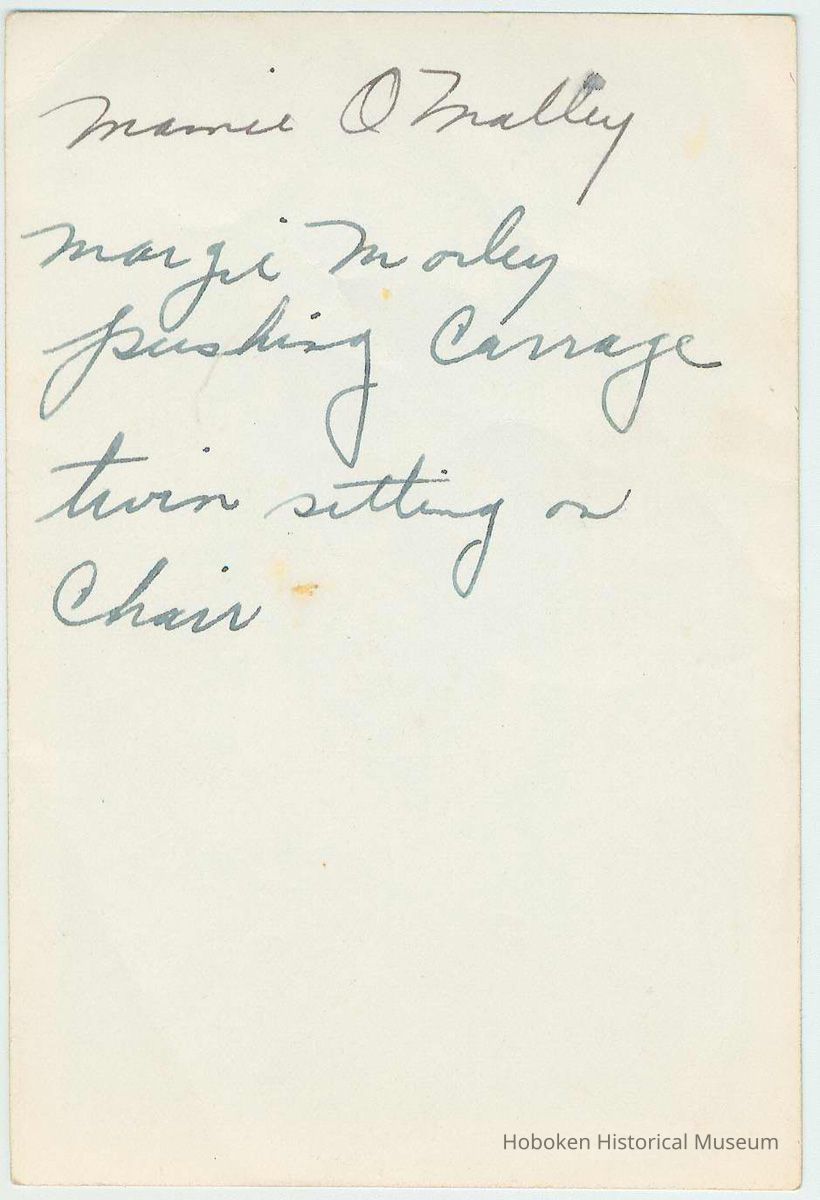 Mamie O Malley
Margie Morley
pushing Carrage
twin setting on
Chair
Hoboken Historical Museum